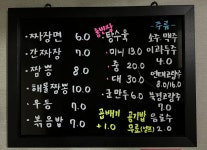 짜장면 6.0
간짜장 7.0
짬뽕 8.0
해물짬뽕 10.0
우동 7.0
볶음밥 7.0
탕수육
미니 13.0
중 20.0
대 30.0
군만두 6.0
곱배기 +1.0
공기밥 무료(셀프)
주류
소주 맥주
이과두주 4.0
연태고량주
북경고량주 7.0
음료수 2.0